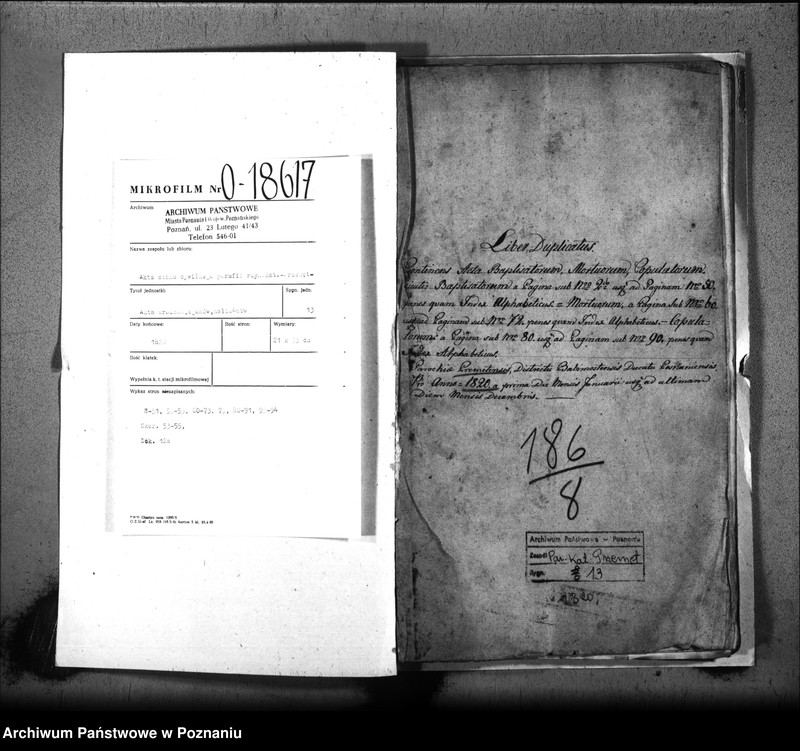 MIKROFILM Nr O-18617
Archiwum
ARCHIWUM PAŃSTWOWE
Miasta Poznania i Wojew. Poznańskiego
Poznań, ul. 23 Lutego 41/43
Telefon 546-01
Nazwa zespołu lub zbioru:
Akta stanu cywilnego parafii
Tytuł jednostki:
Sygn. jedn.
Akta urodzeń,
13
Daty końcowe:
Ilość stron:
Wymiary:
1820
21 x 33 cm
Ilość klatek:
Wypełnia k. t. stacji mikrofilmowej
Wykaz stron niezapisanych:
60-73,
53-55,
Liber Duplicatus.
Continens Acta Baptisatorum, Mortuorum, Copulatorum,
Baptisatorum a Pagina sub Nro 2do usq ad Paginam Nro 50.
penes quam Index Alphabeticus = Mortuorum, a Pagina sub Nro 60
usq ad Paginam sub Nro 72. penes quam Index Alphabeticus. — Copula-
torum a Pagina sub Nro 80. usq ad Paginam sub Nro 90. penes quam
Index Alphabeticus.
Parochiae Districtus Babimostensis Ducatus
Pro Anno = 1820 a prima Die Mensis Januarii usq ad ultimam
Diem Mensis Decembris.
186
8
Archiwum Państwowe - Poznań
Zespół Par. Kat. Przemęt
Sygn. 13
1820
Archiwum Państwowe w Poznaniu